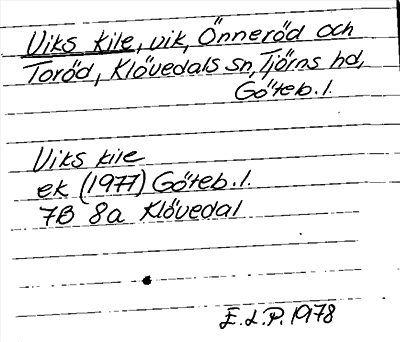 Viks kile, vik, Önneröd och
Toröd, Klövedals sn, Tjörns hd,
Göteb. l.
Viks kile
ek (1977) Göteb. l.
7B 8a Klövedal
E.L.P. 1978